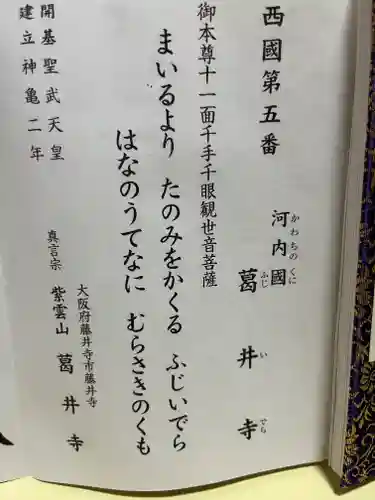 西國第五番
河内國 葛井寺
かわちのくに ふじいでら
御本尊十一面千手千眼観世音菩薩
まいるより たのみをかくる ふじいでら
はなのうてなに むらさきのくも
大阪府藤井寺市藤井寺
真言宗 紫雲山 葛井寺
開基聖武天皇
建立神亀二年